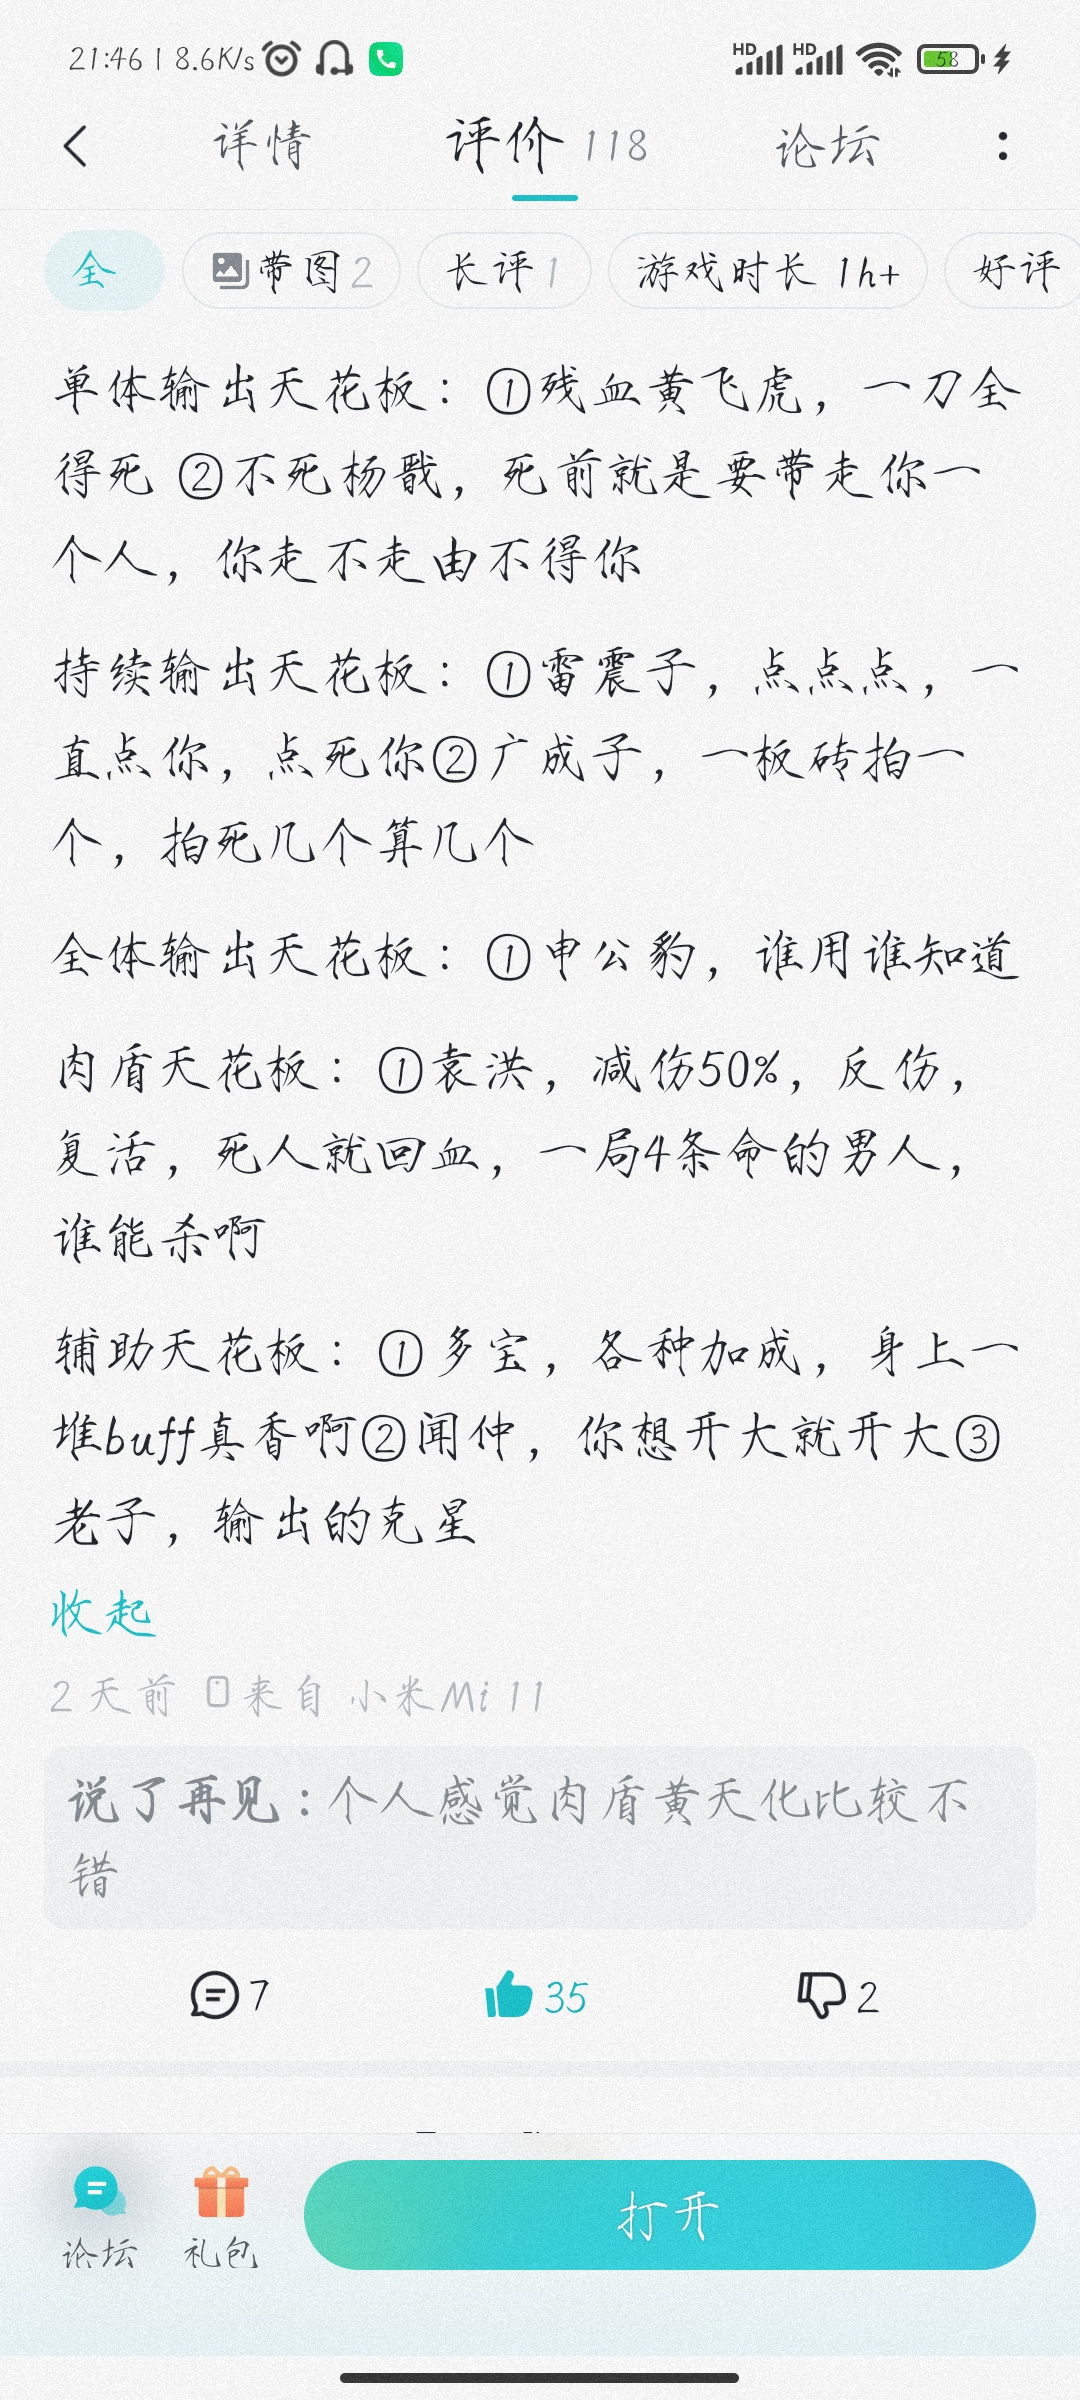 21:46 | 8.6K/s HD HD 58
详情 评价 118 论坛
全 带图 2 长评 1 游戏时长 1h+ 好评
单体输出天花板：①残血黄飞虎，一刀全
得死 ②不死杨戬，死前就是要带走你一
个人，你走不走由不得你
持续输出天花板：①雷震子，点点点，一
直点你，点死你②广成子，一板砖拍一
个，拍死几个算几个
全体输出天花板：①申公豹，谁用谁知道
肉盾天花板：①袁洪，减伤50%，反伤，
复活，死人就回血，一局4条命的男人，
谁能杀啊
辅助天花板：①多宝，各种加成，身上一
堆buff真香啊②闻仲，你想开大就开大③
老子，输出的克星
收起
2 天前 来自 小米Mi 11
说了再见：个人感觉肉盾黄天化比较不
错
7 35 2
论坛 礼包 打开